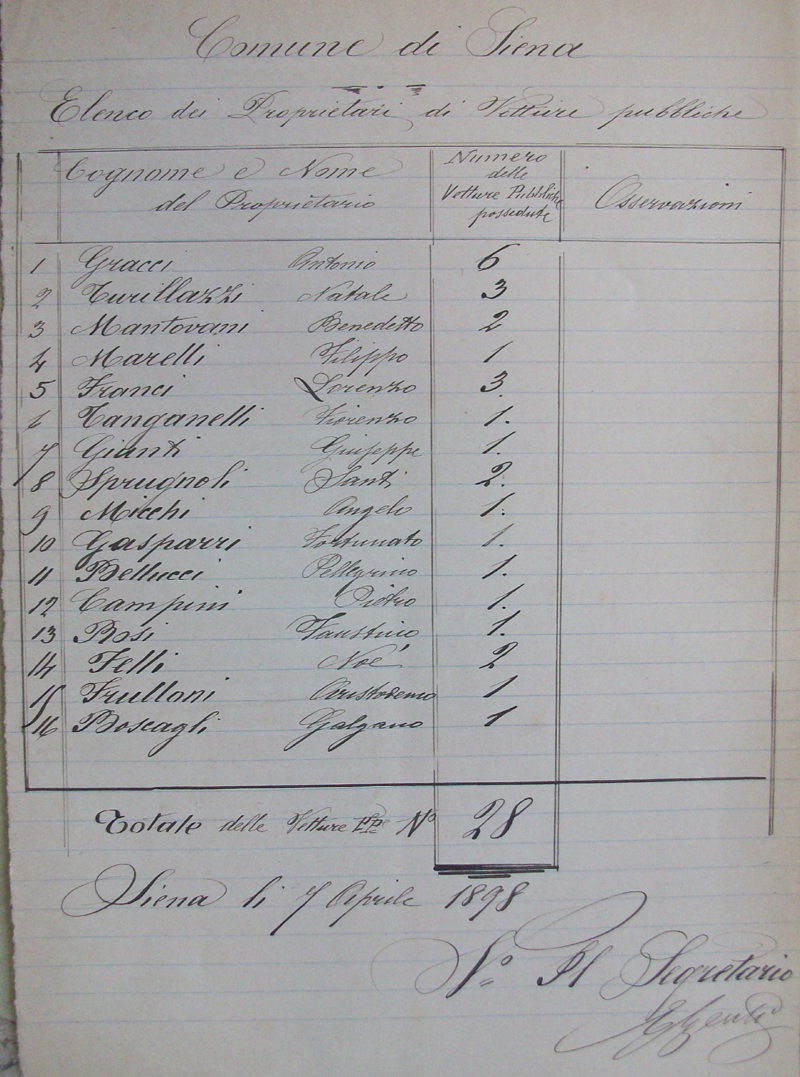 Comune di Siena
Elenco dei Proprietari di Vetture pubbliche
Cognome e Nome
del Proprietario
Numero
delle
Vetture Pubbliche
possedute
Osservazioni
1 Gracci Antonio 6
2 Turillazzi Natale 3
3 Mantovani Benedetto 2
4 Marelli Filippo 1
5 Franci Lorenzo 3.
6 Tanganelli Fiorenzo 1.
7 Gianti Giuseppe 1.
8 Sprugnoli Santi 2.
9 Micchi Angelo 1.
10 Gasparri Fortunato 1.
11 Bellucci Pellegrino 1.
12 Campini Pietro 1.
13 Bosi Faustino 1.
14 Felli Noè 2
15 Frulloni Aristodemo 1
16 Boscagli Galgano 1
Totale delle Vetture PP.e N.º 28
Siena li 7 Aprile 1898
V.º Il Segretario